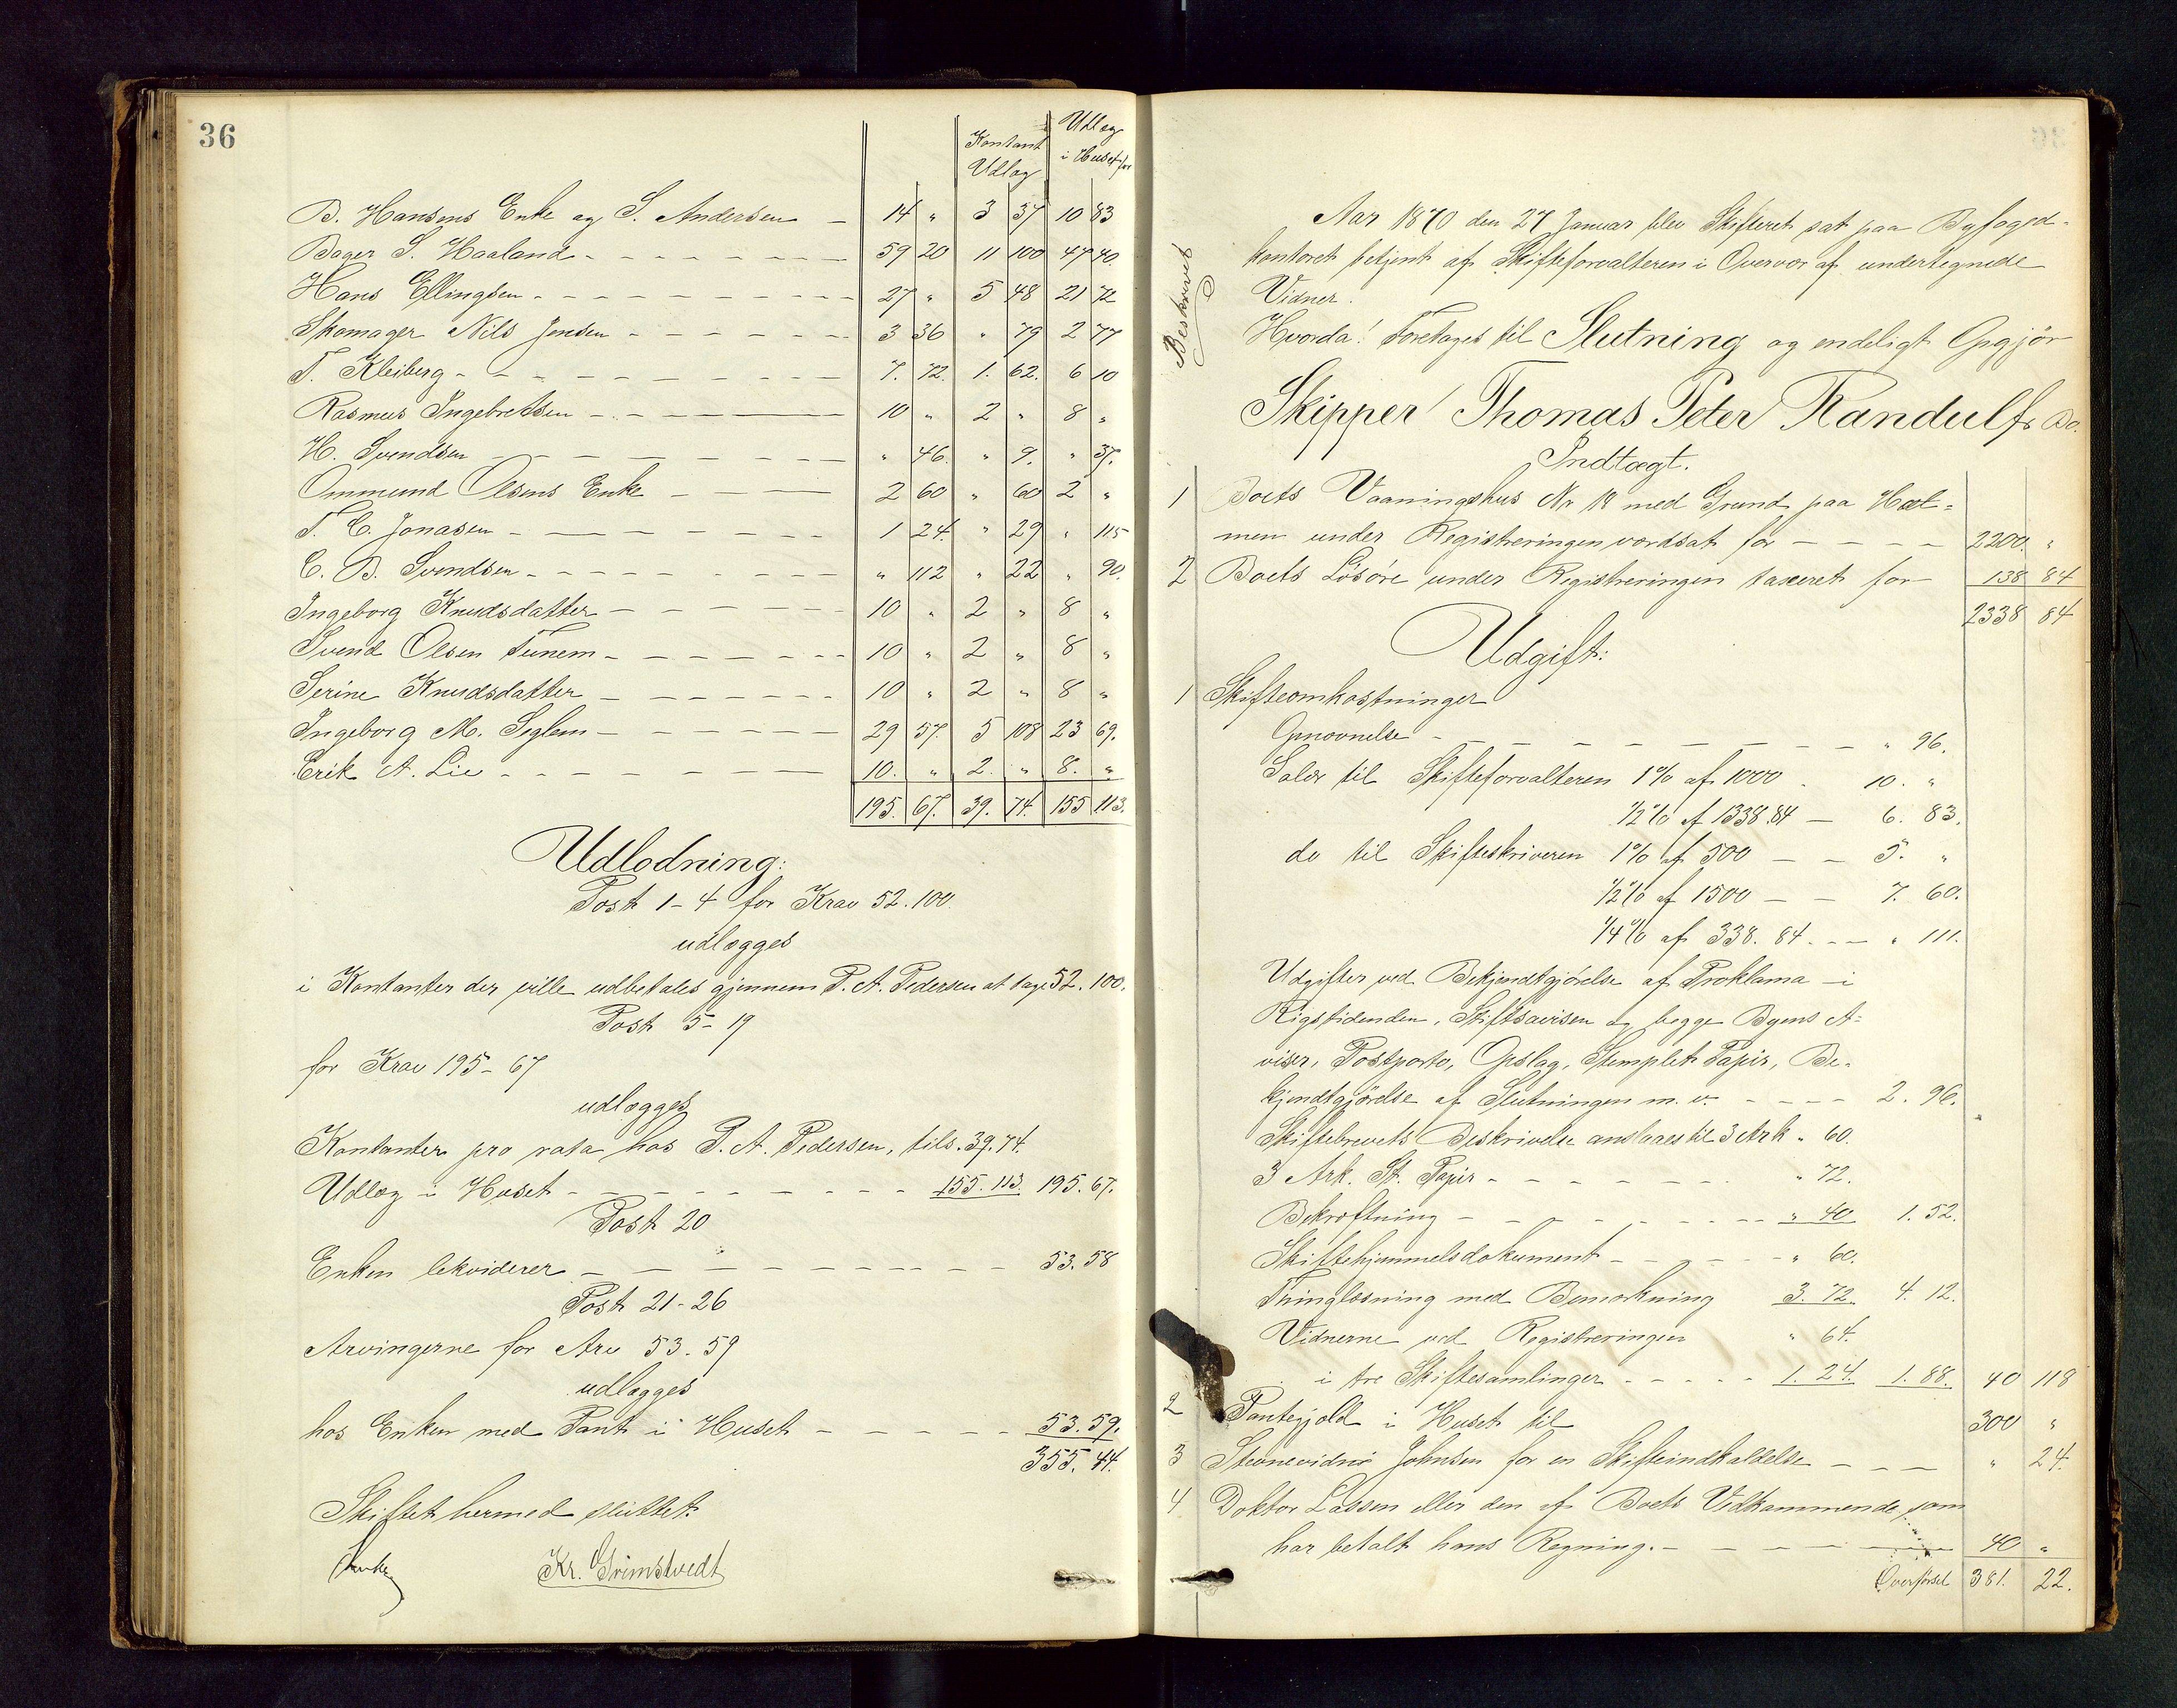 36
Kontant Udlæg
Udlæg i Huset for
B. Hansens Enke og S. Andersen - 14 " 3 37 10 83
Bager S. Haaland - 59 20 11 100 47 40.
Hans Ellingsen - 27 " 5 48 21 72
Skomager Nils Jensen - 3 36 " 79 2 77
T. Kleiberg - 7. 72. 1. 62. 6 10
Rasmus Ingebretsen - 10 " 2 " 8 "
H. Svendsen - " 46. " 9. " 37.
Ommund Olsens Enke - 2 60 " 60 2 "
T. C. Jonasen - 1 24. " 29 " 115
C. B. Svendsen - " 112 " 22 " 90.
Ingeborg Knudsdatter - 10 " 2 " 8 "
Svend Olsen Tunem - 10 " 2 " 8 "
Serine Knudsdatter - 10 " 2 " 8 "
Ingeborg M. Seglem - 29 57. 5 108 23 69.
Erik A. Lie - 10. " 2. " 8. "
195. 67. 39. 74. 155 113.
Udlodning:
Post 1-4 for Krav 52.100.
udlægges
i Kontanter der ville udbetales gjennem P. A. Pedersen at tage 52. 100.
Post 5-19
for Krav 195-67
udlægges
Kontanter pro rata hos P. A. Pedersen, tils. 39.74.
Udlæg i Huset - 155. 113. 195. 67.
Post 20
Enken lekviderer - 53. 58
Post 21-26
Arvingerne for Arv 53. 59
udlægges
hos Enken med Pant i Huset - 53. 59.
355. 44.
Skiftet hermed sluttet.
Kr. Grimstvedt
Beskrevet
Aar 1870 den 27 Januar blev Skifteret sat paa Byfoged-
kontoret betjent af Skifteforvalteren i Overvær af undertegnede
Vidner.
Hvorda! Foretages til Slutning og endeligt Opgjør
Skipper Thomas Peter Randulfs Bo.
Indtægt.
1 Boets Vaaningshus No 18 med Grund paa Hol-
men under Registreringen værdsat for - 2200. "
2 Boets Løsøre under Registreringen taxeret for 138 84
2338 84
Udgift:
1 Skifteomkostninger
Opnævnelse - " 96.
Salær til Skifteforvalteren 1% af 1000 - 10. "
1/2% af 1338.84 - 6. 83.
do til Skifteskriveren 1% af 500 - 5. "
1/2% af 1500 - 7. 60.
1/4% af 338. 84. - " 111.
Udgifter ved Bekjendtgjørelse af Proklama i
Rigstidenden, Stiftsavisen og begge Byens A-
viser, Postporto, Opslag, Stemplet Papir, Be-
kjendtgjørelse af Slutningen m. v. - 2. 96.
Skiftebrevets Beskrivelse anslaaes til 3 Ark " 60.
3 Ark. St. Papir - " 72.
Bekræftning - " 40 1. 52.
Skiftehjemmelsdokument - " 60.
Thinglæsning med Bemærkning 3. 72. 4. 12.
Vidnerne ved Registreringen " 64.
i tre Skiftesamlinger - 1. 24. 1. 88. 40 118
2 Pantegjæld i Huset til 300 "
3 Stevnevidne Johnsen for en Skifteindkaldelse - " 24.
4 Doktor Lassen eller den af Boets Vedkommende som
har betalt hans Regning. - 40 "
Overførsel 381. 22.